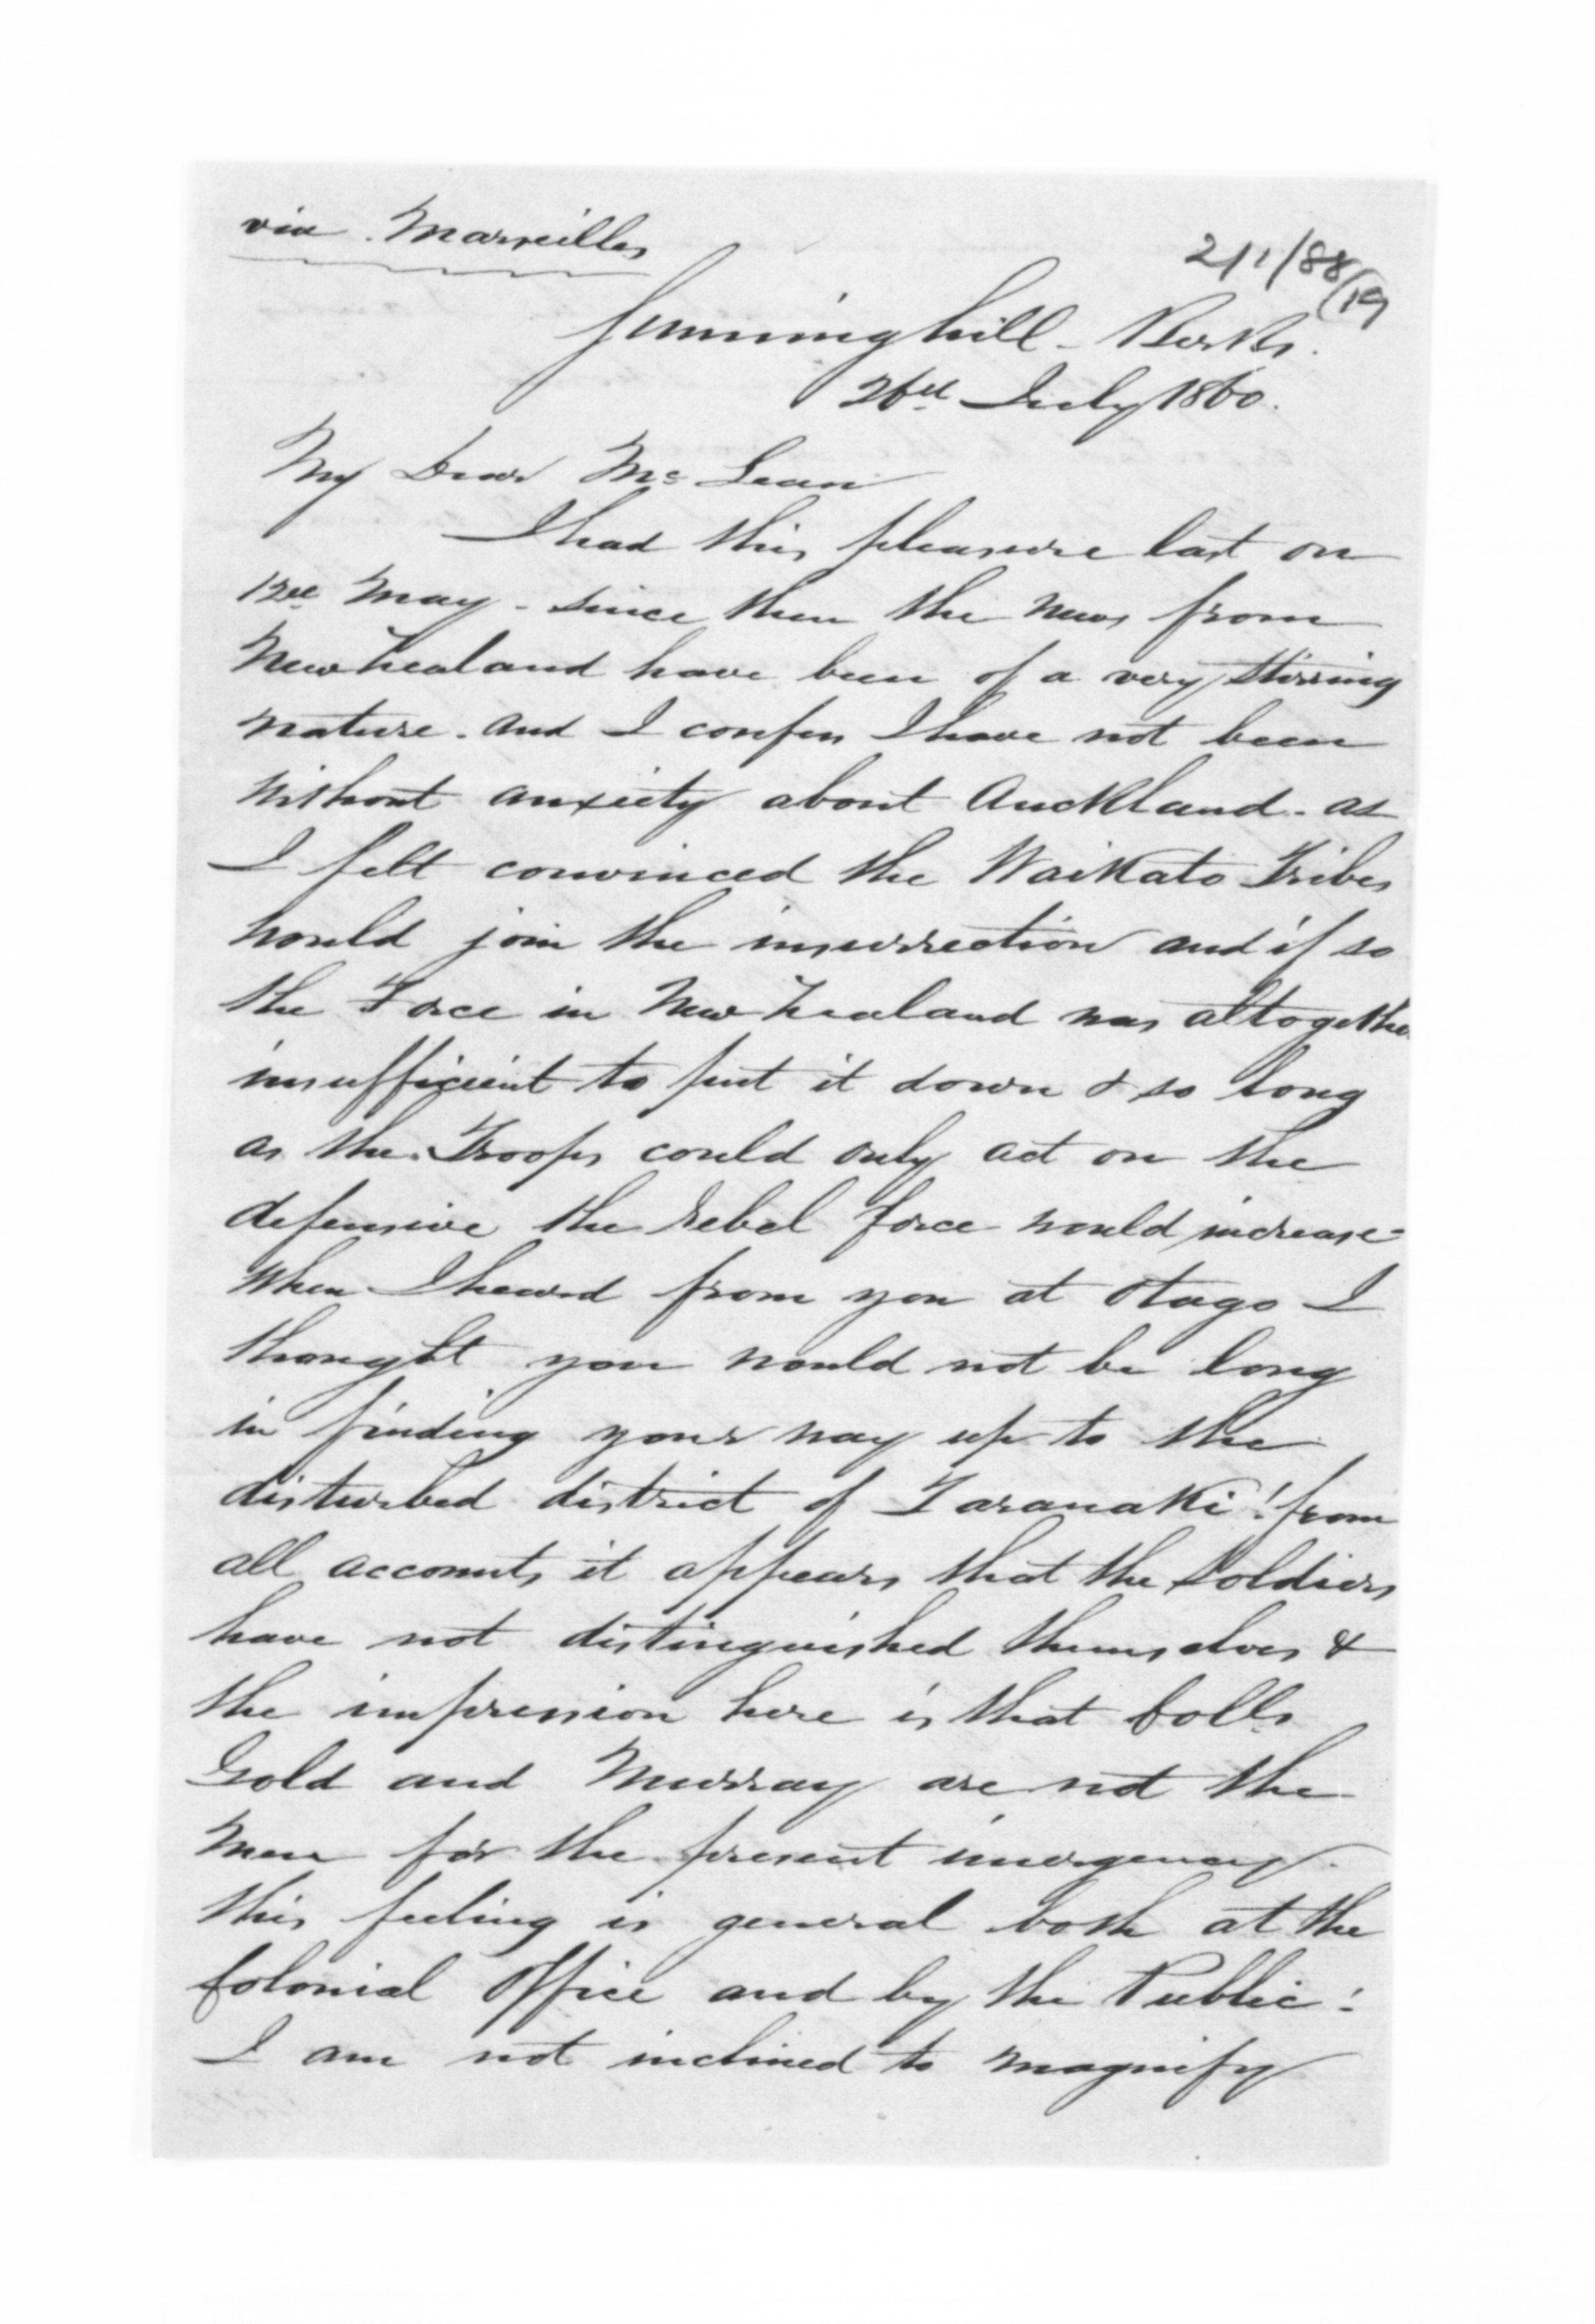 via Marseilles
2/1/88/19
Sunninghill - Berks.
26th July 1860.
My Dear McLean
I had this pleasure last on
12th May - since then the news from
New Zealand have been of a very stirring
nature. and I confess I have not been
without anxiety about Auckland - as
I felt convinced the Waikato Tribes
would join the insurrection and if so
the Force in New Zealand was altogether
insufficient to put it down & so long
as the Troops could only act on the
defensive the rebel force would increase -
When I heard from you at Otago I
thought you would not be long
in finding your way up to the
disturbed district of Taranaki! from
all accounts it appears that the Soldiers
have not distinguished themselves &
the impression here is that Colls
Gold and Murray are not the
men for the present imergency.
this feeling is general both at the
Colonial Office and by the Public:
I am not inclined to magnify